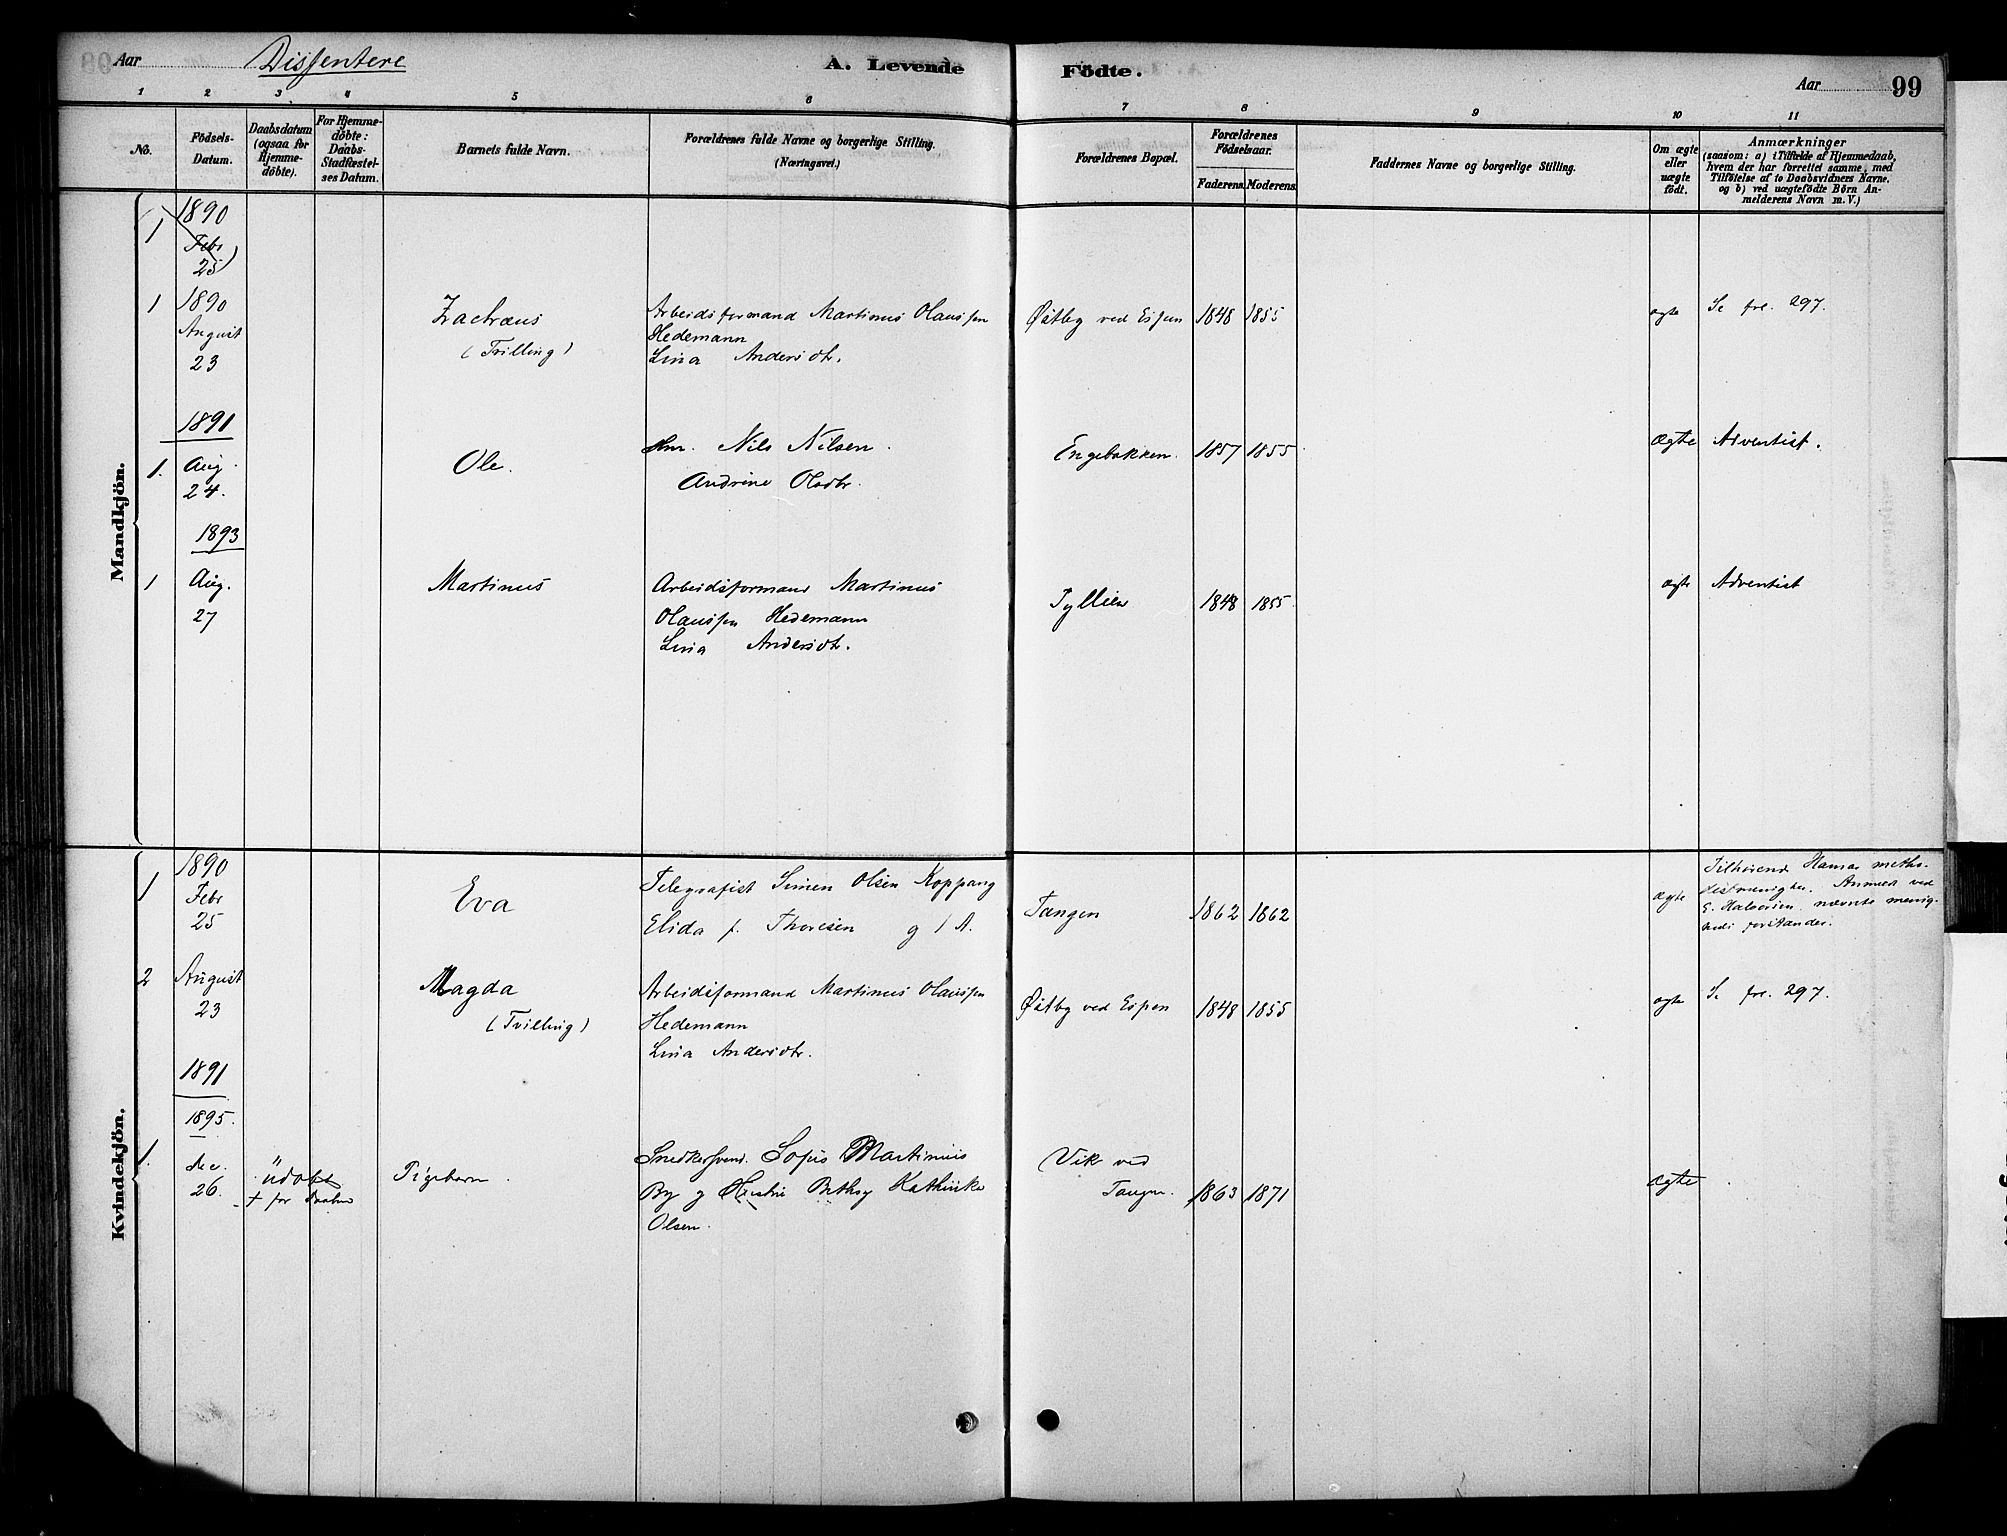 Aar
Dissentere
A. Levende Födte.
Aar
99
1 2 3 4 5 6 7 8 9 10 11
No.
Födsels-
Datum.
Daabsdatum
(ogsaa for
Hjemme-
döbte).
For Hjemme-
döbte:
Daabs-
Stadfæstel-
ses Datum.
Barnets fulde Navn.
Forældrenes fulde Navne og borgerlige Stilling.
(Næringsvei.)
Forældrenes Bopæl.
Forældrenes
Födselsaar.
Faderens. Moderens.
Faddernes Navne og borgerlige Stilling.
Om ægte
eller
uægte
födt.
Anmærkninger
(saasom: a) i Tilfælde af Hjemmedaab,
hvem der har forrettet samme, med
Tilföielse af to Daabsvidners Navne.
og b) ved uægtefödte Börn An-
melderens Navn m. V.)
Mandkjön.
1 1890
Febr
25
1 1890
August
23
Zachræus
(Tvilling)
Arbeidsformand Martinus Olaussen
Hedemann
Lina Andersdtr.
Østby ved Espen 1848 1855
ægte
Se fre. 297.
1891
1. Aug.
24.
Ole.
Nils Nilsen.
Andrine Olsdtr.
Engebakken. 1857 1855
Ægte Adventist.
1893
1 Aug.
27
Martinus
Arbeidsformand Martinus
Olaussen Hedemann
Lina Andersdtr.
Tyllien 1848 1855
ægte Adventist
Kvindekjön.
1 1890
Febr
25
Eva
Telegrafist Simen Olsen Koppang
Elida f. Thoresen
Tangen 1862 1862
Ægte
Tilhørende Hamar metho-
distmenighed. Anmeldt ved
E. Halvorsen nævnte menig-
heds forstander.
2 August
23
Magda
(Tvilling)
Arbeidsformand Martinus Olaussen
Hedemann
Lina Andersdtr.
Østby ved Espen 1848 1855
ægte
Se fre. 297.
1891
1895.
1. dec.
26.
udøbt
+ for Daaben
Pigebarn.
Snedkersvend. Sofus Martinius
By g Bethsy Kathinka
Olsen.
Vik ved
Tangen. 1863 1871
Ægte